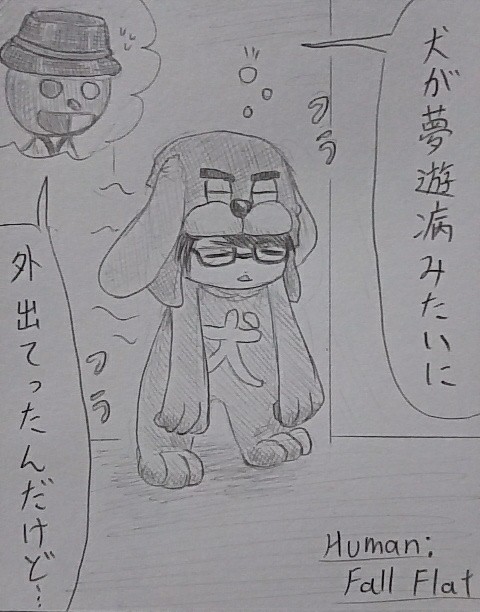 犬が夢遊病みたいに
フラ
フラ
犬
外出てったんだけど…
Human:
Fall Flat